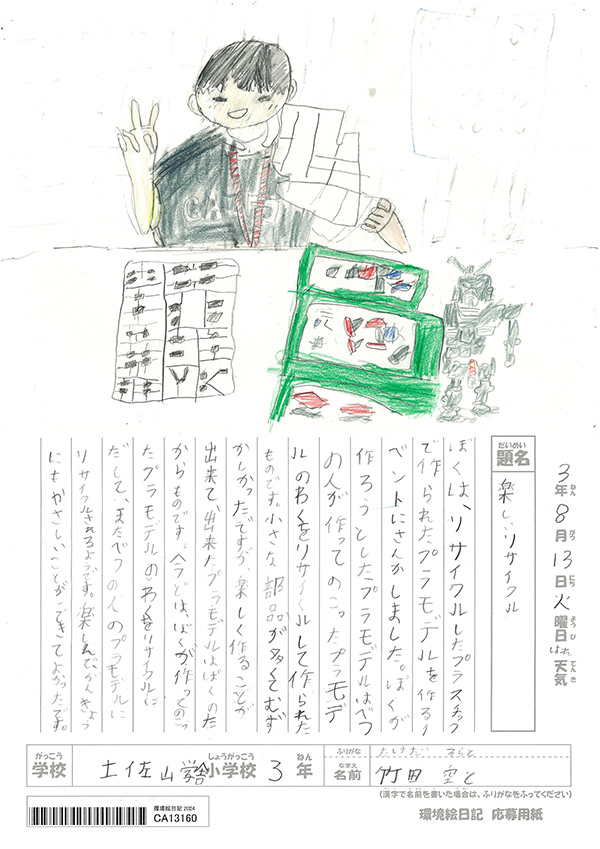 3年8月13日火曜日はれ天気
ねん がつ にち ようび てんき
だいめい
題名 楽しいリサイクル
ぼくは、リサイクルしたプラスチック
で作られたプラモデルを作るイ
ベントにさんかしました。ぼくが
作ろうとしたプラモデルはべつ
の人が作ってのこったプラモデ
ルのわくをリサイクルして作られた
ものです。小さな部品が多くてむず
かしかったですが、楽しく作ることが
出来て、出来たプラモデルはぼくのた
からものです。今どは、ぼくが作ってのこっ
たプラモデルのわくをリサイクルに
だして、またべつの人のプラモデルに
リサイクルされるようです。楽しんでかんきょう
にもやさしいことができてよかったです。
がっこう しょうがっこう ねん
学校 土佐山学舎小学校 3年
ふりがな そらと
なまえ
名前 竹田 空と
(漢字で名前を書いた場合は、ふりがなをふってください)
環境絵日記2024
CA13160
環境絵日記 応募用紙